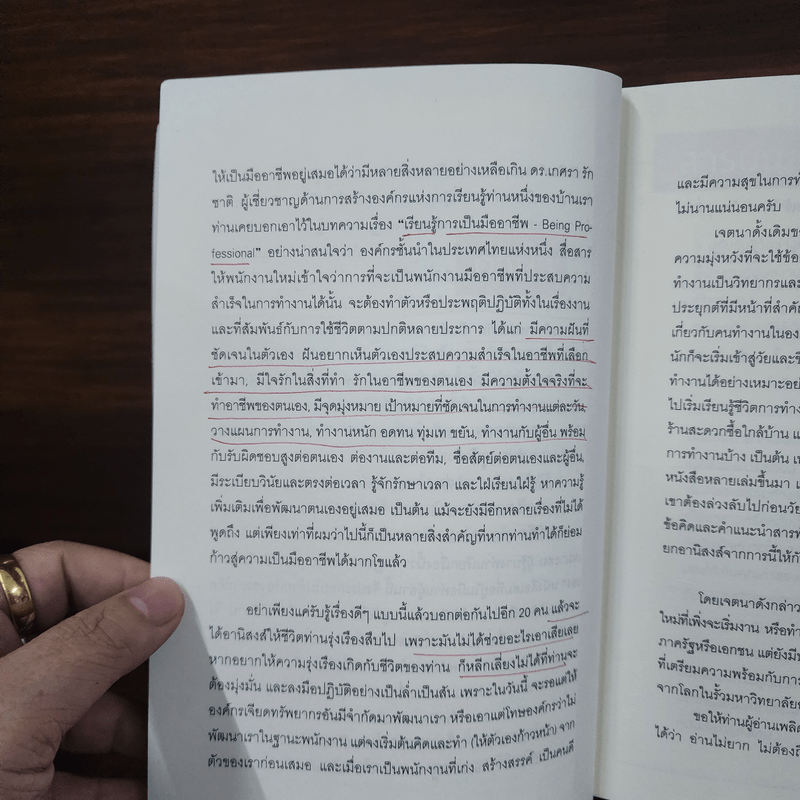 ให้เป็นมืออาชีพอยู่เสมอได้ว่ามีหลายสิ่งหลายอย่างเหลือเกิน ดร.เกศรา รัก
ชาติ ผู้เชี่ยวชาญด้านการสร้างองค์กรแห่งการเรียนรู้ท่านหนึ่งของบ้านเรา
ท่านเคยบอกเอาไว้ในบทความเรื่อง “เรียนรู้การเป็นมืออาชีพ - Being Pro-
fessional” อย่างน่าสนใจว่า องค์กรชั้นนำในประเทศไทยแห่งหนึ่ง สื่อสาร
ให้พนักงานใหม่เข้าใจว่าการที่จะเป็นพนักงานมืออาชีพที่ประสบความ
สำเร็จในการทำงานได้นั้น จะต้องทำตัวหรือประพฤติปฏิบัติทั้งในเรื่องงาน
และที่สัมพันธ์กับการใช้ชีวิตตามปกติหลายประการ ได้แก่ มีความฝันที่
ชัดเจนในตัวเอง ฝันอยากเห็นตัวเองประสบความสำเร็จในอาชีพที่เลือก
เข้ามา, มีใจรักในสิ่งที่ทำ รักในอาชีพของตนเอง มีความตั้งใจจริงที่จะ
ทำอาชีพของตนเอง, มีจุดมุ่งหมาย เป้าหมายที่ชัดเจนในการทำงานแต่ละวัน,
วางแผนการทำงาน, ทำงานหนัก อดทน ทุ่มเท ขยัน, ทำงานกับผู้อื่น พร้อม
กับรับผิดชอบสูงต่อตนเอง ต่องานและต่อทีม, ซื่อสัตย์ต่อตนเองและผู้อื่น,
มีระเบียบวินัยและตรงต่อเวลา รู้จักรักษาเวลา และใฝ่เรียนใฝ่รู้ หาความรู้
เพิ่มเติมเพื่อพัฒนาตนเองอยู่เสมอ เป็นต้น แม้จะยังมีอีกหลายเรื่องที่ไม่ได้
พูดถึง แต่เพียงเท่าที่ผมว่าไปนี้ก็เป็นหลายสิ่งสำคัญที่หากท่านทำได้ก็ย่อม
ก้าวสู่ความเป็นมืออาชีพได้มากโขแล้ว
อย่าเพียงแค่รับรู้เรื่องดีๆ แบบนี้แล้วบอกต่อกันไปอีก 20 คน แล้วจะ
ได้อานิสงส์ให้ชีวิตท่านรุ่งเรืองสืบไป เพราะมันไม่ได้ช่วยอะไรเอาเสียเลย
หากอยากให้ความรุ่งเรืองเกิดกับชีวิตของท่าน ก็หลีกเลี่ยงไม่ได้ที่ท่านจะ
ต้องมุ่งมั่น และลงมือปฏิบัติอย่างเป็นล่ำเป็นสัน เพราะในวันนี้ จะรอแต่ให้
องค์กรเจียดทรัพยากรอันมีจำกัดมาพัฒนาเรา หรือเอาแต่โทษองค์กรว่าไม่
พัฒนาเราในฐานะพนักงาน แต่จงเริ่มต้นคิดและทำ (ให้ตัวเองก้าวหน้า) จาก
ตัวของเราก่อนเสมอ และเมื่อเราเป็นพนักงานที่เก่ง สร้างสรรค์ เป็นคนดี
และมีความสุขในการทำ
ไม่นานแน่นอนครับ
เจตนาดั้งเดิมขอ
ความมุ่งหวังที่จะใช้ข้อ
ทำงานเป็นวิทยากรและ
ประยุกต์ที่มีหน้าที่สำคัญ
เกี่ยวกับคนทำงานในอง
นักก็จะเริ่มเข้าสู่วัยและชี
ทำงานได้อย่างเหมาะอย่
ไปเริ่มเรียนรู้ชีวิตการทำ
ร้านสะดวกซื้อใกล้บ้าน แ
การทำงานบ้าง เป็นต้น เ
หนังสือหลายเล่มขึ้นมา เ
เขาต้องล่วงลับไปก่อนวัย
ข้อคิดและคำแนะนำสารพ
ยกอานิสงส์จากการนี้ให้กั
โดยเจตนาดังกล่าว
ใหม่ที่เพิ่งจะเริ่มงาน หรือทำ
ภาครัฐหรือเอกชน แต่ยังมีห
ที่เตรียมความพร้อมกับการ
จากโลกในรั้วมหาวิทยาลัย
ขอให้ท่านผู้อ่านเพลิด
ได้ว่า อ่านไม่ยาก ไม่ต้องถึ